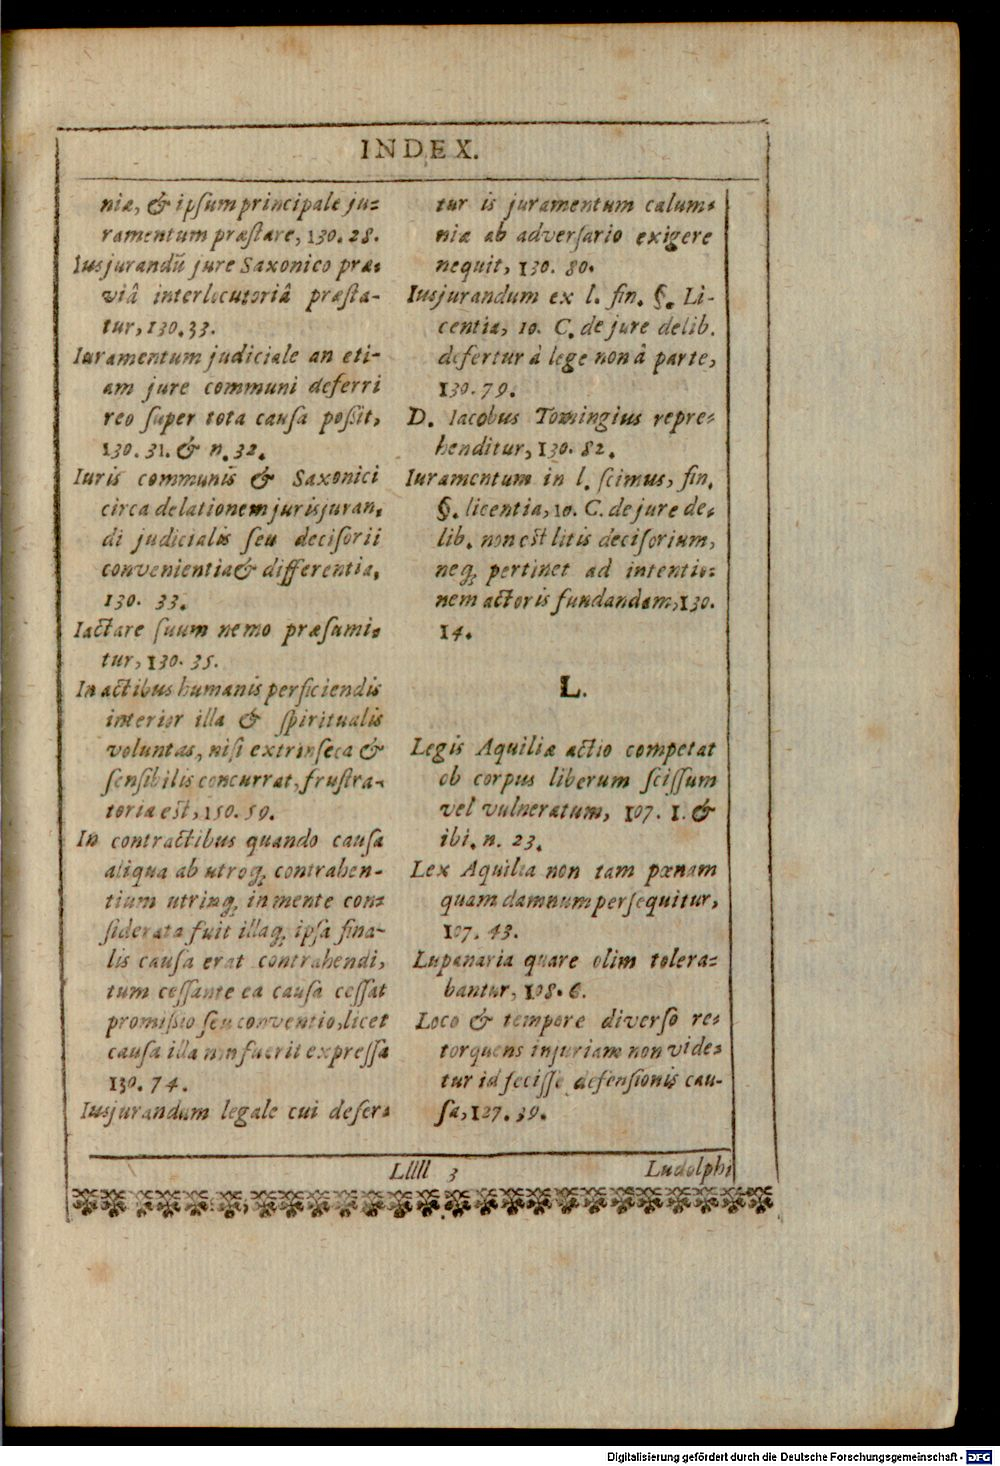 INDEX.
niæ, & ipſum principale ju-
ramentum præſtare, 130. 28.
Iusjurandũ jure Saxonico præ-
viâ interlocutoriâ præſta-
tur, 130. 33.
Iuramentum judiciale an eti-
am jure communi deferri
reo ſuper tota cauſa poßit,
130. 31. & n. 32.
Iuris communis & Saxonici
circa delationem jurisjuran-
di judicialis ſeu deciſorii
convenientia & differentia,
130. 33.
Iactare ſuum nemo præſumi-
tur, 130. 35.
In actibus humanis perficiendis
interior illa & ſpiritualis
voluntas, niſi extrinſeca &
ſenſibilis concurrat, fruſtra-
toria eſt, 150. 59.
In contractibus quando cauſa
aliqua ab utroq; contrahen-
tium utrinq; in mente con-
ſiderata fuit illaq; ipſa fina-
lis cauſa erat contrahendi,
tum ceſſante ea cauſa ceſſat
promißio ſeu conventio, licet
cauſa illa non fuerit expreſſa
130. 74.
Iusjurandum legale cui defer-
tur is juramentum calum-
niæ ab adverſario exigere
nequit, 130. 80.
Iusjurandum ex l. fin. §. Li-
centia, 10. C. de jure delib.
defertur à lege non â parte,
130. 79.
D. Iacobus Tomingius repre-
henditur, 130. 82.
Iuramentum in l. ſcimus, fin.
§. licentia, 10. C. de jure de-
lib. non eſt litis deciſorium,
neq; pertinet ad intentio-
nem actoris fundandam, 130.
14.
L.
Legis Aquiliæ actio competat
ob corpus liberum ſciſſum
vel vulneratum, 107. 1. &
ibi. n. 23.
Lex Aquilia non tam pœnam
quam damnum perſequitur,
107. 43.
Lupanaria quare olim tolera-
bantur, 108. 6.
Loco & tempore diverſo re-
torquens injuriam non vide-
tur id feciſſe defenſionis cau-
ſa, 127. 39.
Lllll 3 Ludolphi
Digitalisierung gefördert durch die Deutsche Forschungsgemeinschaft - DFG